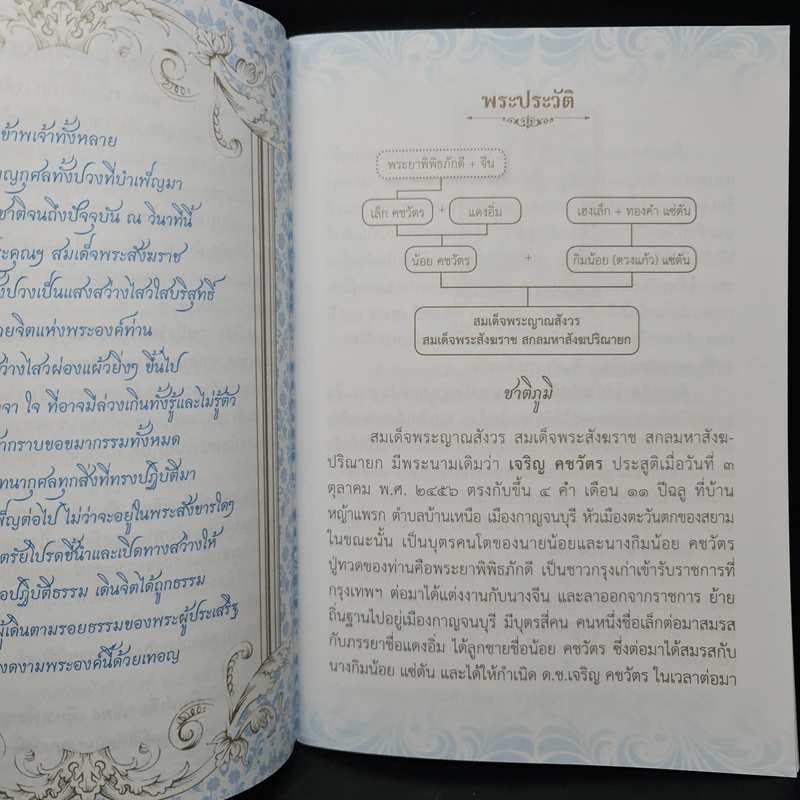 ข้าพเจ้าทั้งหลาย
บุญกุศลทั้งปวงที่บำเพ็ญมา
ชาติจนถึงปัจจุบัน ณ วินาทีนี้
ะคุณฯ สมเด็จพระสังฆราช
ปวงเป็นแสงสว่างไสวใสบริสุทธิ์
ายจิตแห่งพระองค์ท่าน
ว่างไสวผ่องแผ้วยิ่งๆ ขึ้นไป
จา ใจ ที่อาจมีล่วงเกินทั้งรู้และไม่รู้ตัว
ากราบขอขมากรรมทั้งหมด
ทนากุศลทุกสิ่งที่ทรงปฏิบัติมา
พ็ญต่อไป ไม่ว่าจะอยู่ในพระสังขารใดๆ
ตรัยโปรดชี้นำและเปิดทางสว่างให้
อปฏิบัติธรรม เดินจิตได้ถูกธรรม
ผู้เดินตามรอยธรรมของพระผู้ประเสริฐ
งดงามพระองค์นี้ด้วยเทอญ
พระประวัติ
พระยาพิพิธภักดี + จีน
เล็ก คชวัตร แดงอิ่ม เฮงเล็ก + ทองคำ แซ่ตัน
น้อย คชวัตร + กิมน้อย (ดวงแก้ว) แซ่ตัน
สมเด็จพระญาณสังวร
สมเด็จพระสังฆราช สกลมหาสังฆปริณายก
ชาติภูมิ
สมเด็จพระญาณสังวร สมเด็จพระสังฆราช สกลมหาสังฆ-
ปริณายก มีพระนามเดิมว่า เจริญ คชวัตร ประสูติเมื่อวันที่ ๓
ตุลาคม พ.ศ. ๒๔๕๖ ตรงกับขึ้น ๔ ค่ำ เดือน ๑๑ ปีฉลู ที่บ้าน
หญ้าแพรก ตำบลบ้านเหนือ เมืองกาญจนบุรี หัวเมืองตะวันตกของสยาม
ในขณะนั้น เป็นบุตรคนโตของนายน้อยและนางกิมน้อย คชวัตร
ปู่ทวดของท่านคือพระยาพิพิธภักดี เป็นชาวกรุงเก่าเข้ารับราชการที่
กรุงเทพฯ ต่อมาได้แต่งงานกับนางจีน และลาออกจากราชการ ย้าย
ถิ่นฐานไปอยู่เมืองกาญจนบุรี มีบุตรสี่คน คนหนึ่งชื่อเล็กต่อมาสมรส
กับภรรยาชื่อแดงอิ่ม ได้ลูกชายชื่อน้อย คชวัตร ซึ่งต่อมาได้สมรสกับ
นางกิมน้อย แซ่ตัน และได้ให้กำเนิด ด.ช.เจริญ คชวัตร ในเวลาต่อมา